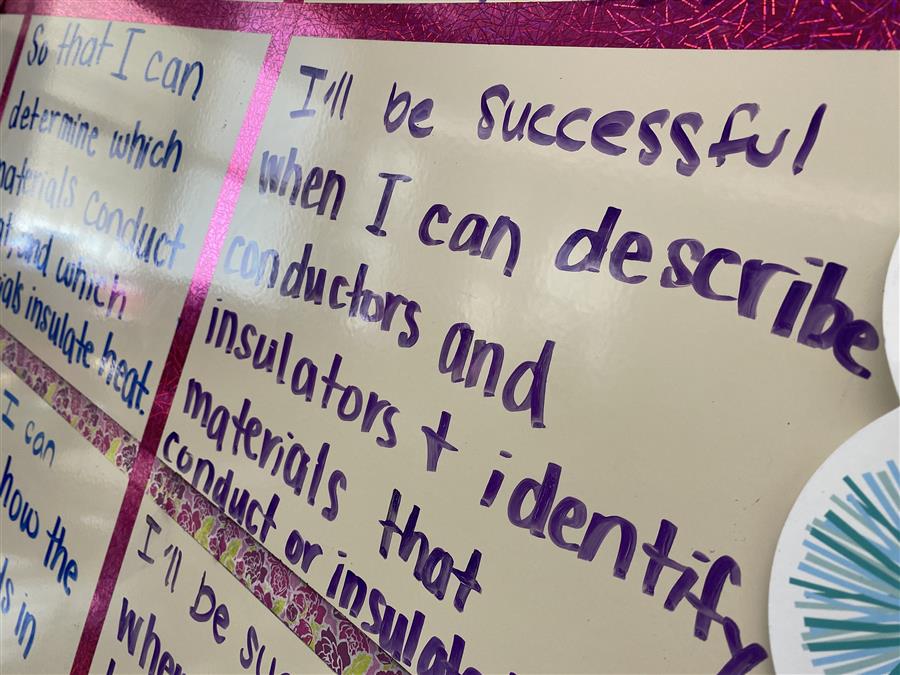 So that I can
determine which
materials conduct
and which
insulate heat.
I'll be successful
when I can describe
conductors and
insulators + identify
materials that
conduct or
I can
how the
in
I'll be